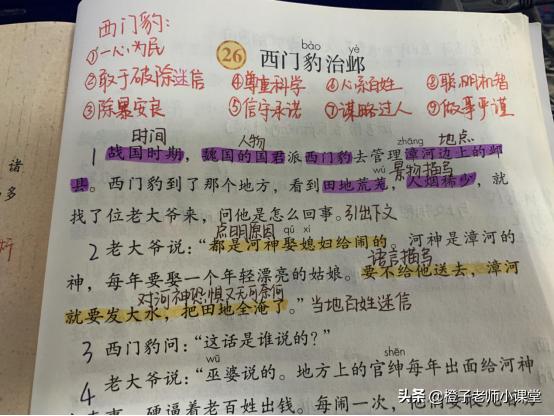 西门豹:
①一心为民
bào yè
26 西门豹治邺
②敢于破除迷信 ④尊重科学 ⑥心系百姓 ⑧聪明机智
③除暴安良 ⑤信守承诺 ⑦谋略过人 ⑨做事严谨
时间 人物 zhāng 地点
1 战国时期,魏国的国君派西门豹去管理漳河边上的邺
wú 景物描写
诸 县。西门豹到了那个地方,看到田地荒芜,人烟稀少,就
多 找了位老大爷来,问他是怎么回事。引出下文
点明原因 qǔ xí
2 老大爷说:“都是河神娶媳妇给闹的。河神是漳河的
语言描写
神,每年要娶一个年轻漂亮的姑娘。要不给他送去,漳河
对河神恐惧又无可奈何
就要发大水,把田地全淹了。”当地百姓迷信
3 西门豹问:“这话是谁说的?”
wū shēn
4 老大爷说:“巫婆说的。地方上的官绅每年出面给河神
硬逼着老百姓出钱。每闹一次,他们
头条 @橙子老师小课堂